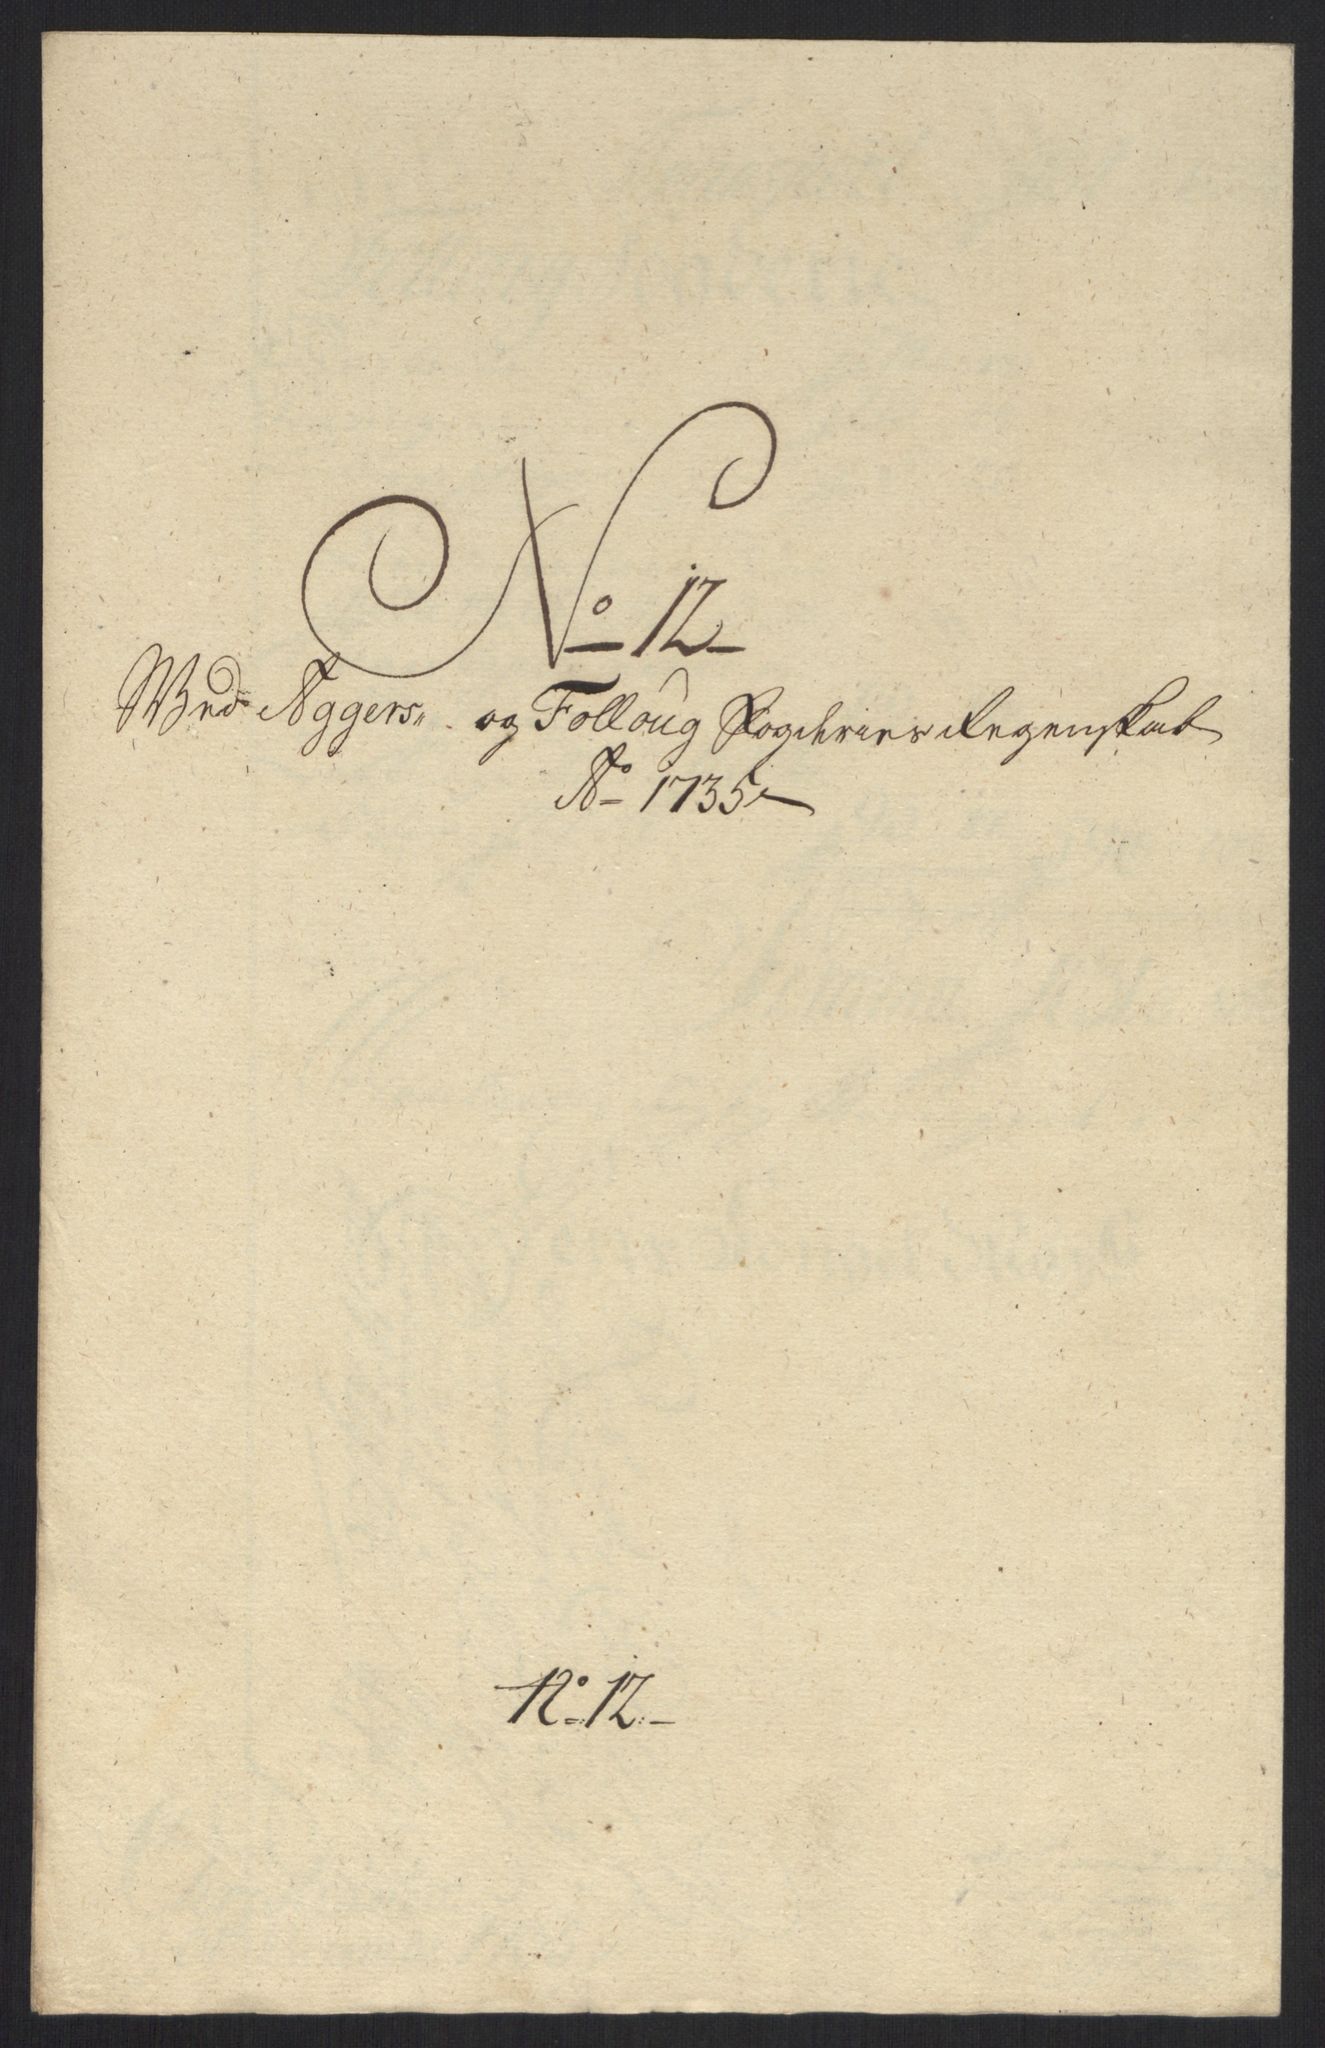 No 12
Wed Aggers- og Folloug Fogderies Regenskab
Ao 1735
No 12